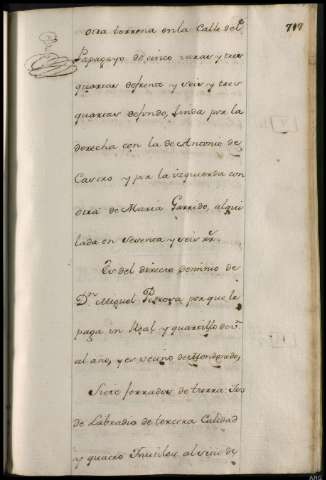 717
otra terrena en la Calle del
Papagayo de cinco varas y tres
quartas defrente y seis y tres
quartas defondo, linda por la
derecha con la de Antonio de
Castro y por la izquierda con
otra de Maria Garrido, alqui
lada en sesenta y seis rr.
Es del directo dominio de
Dn. Miguel por que le
paga un Real y quartillo de vn.
al año, y es vecino de
Siete ferrados de tierra los
de Labradio de tercera Calidad
y quatro Inutiles al sitio de